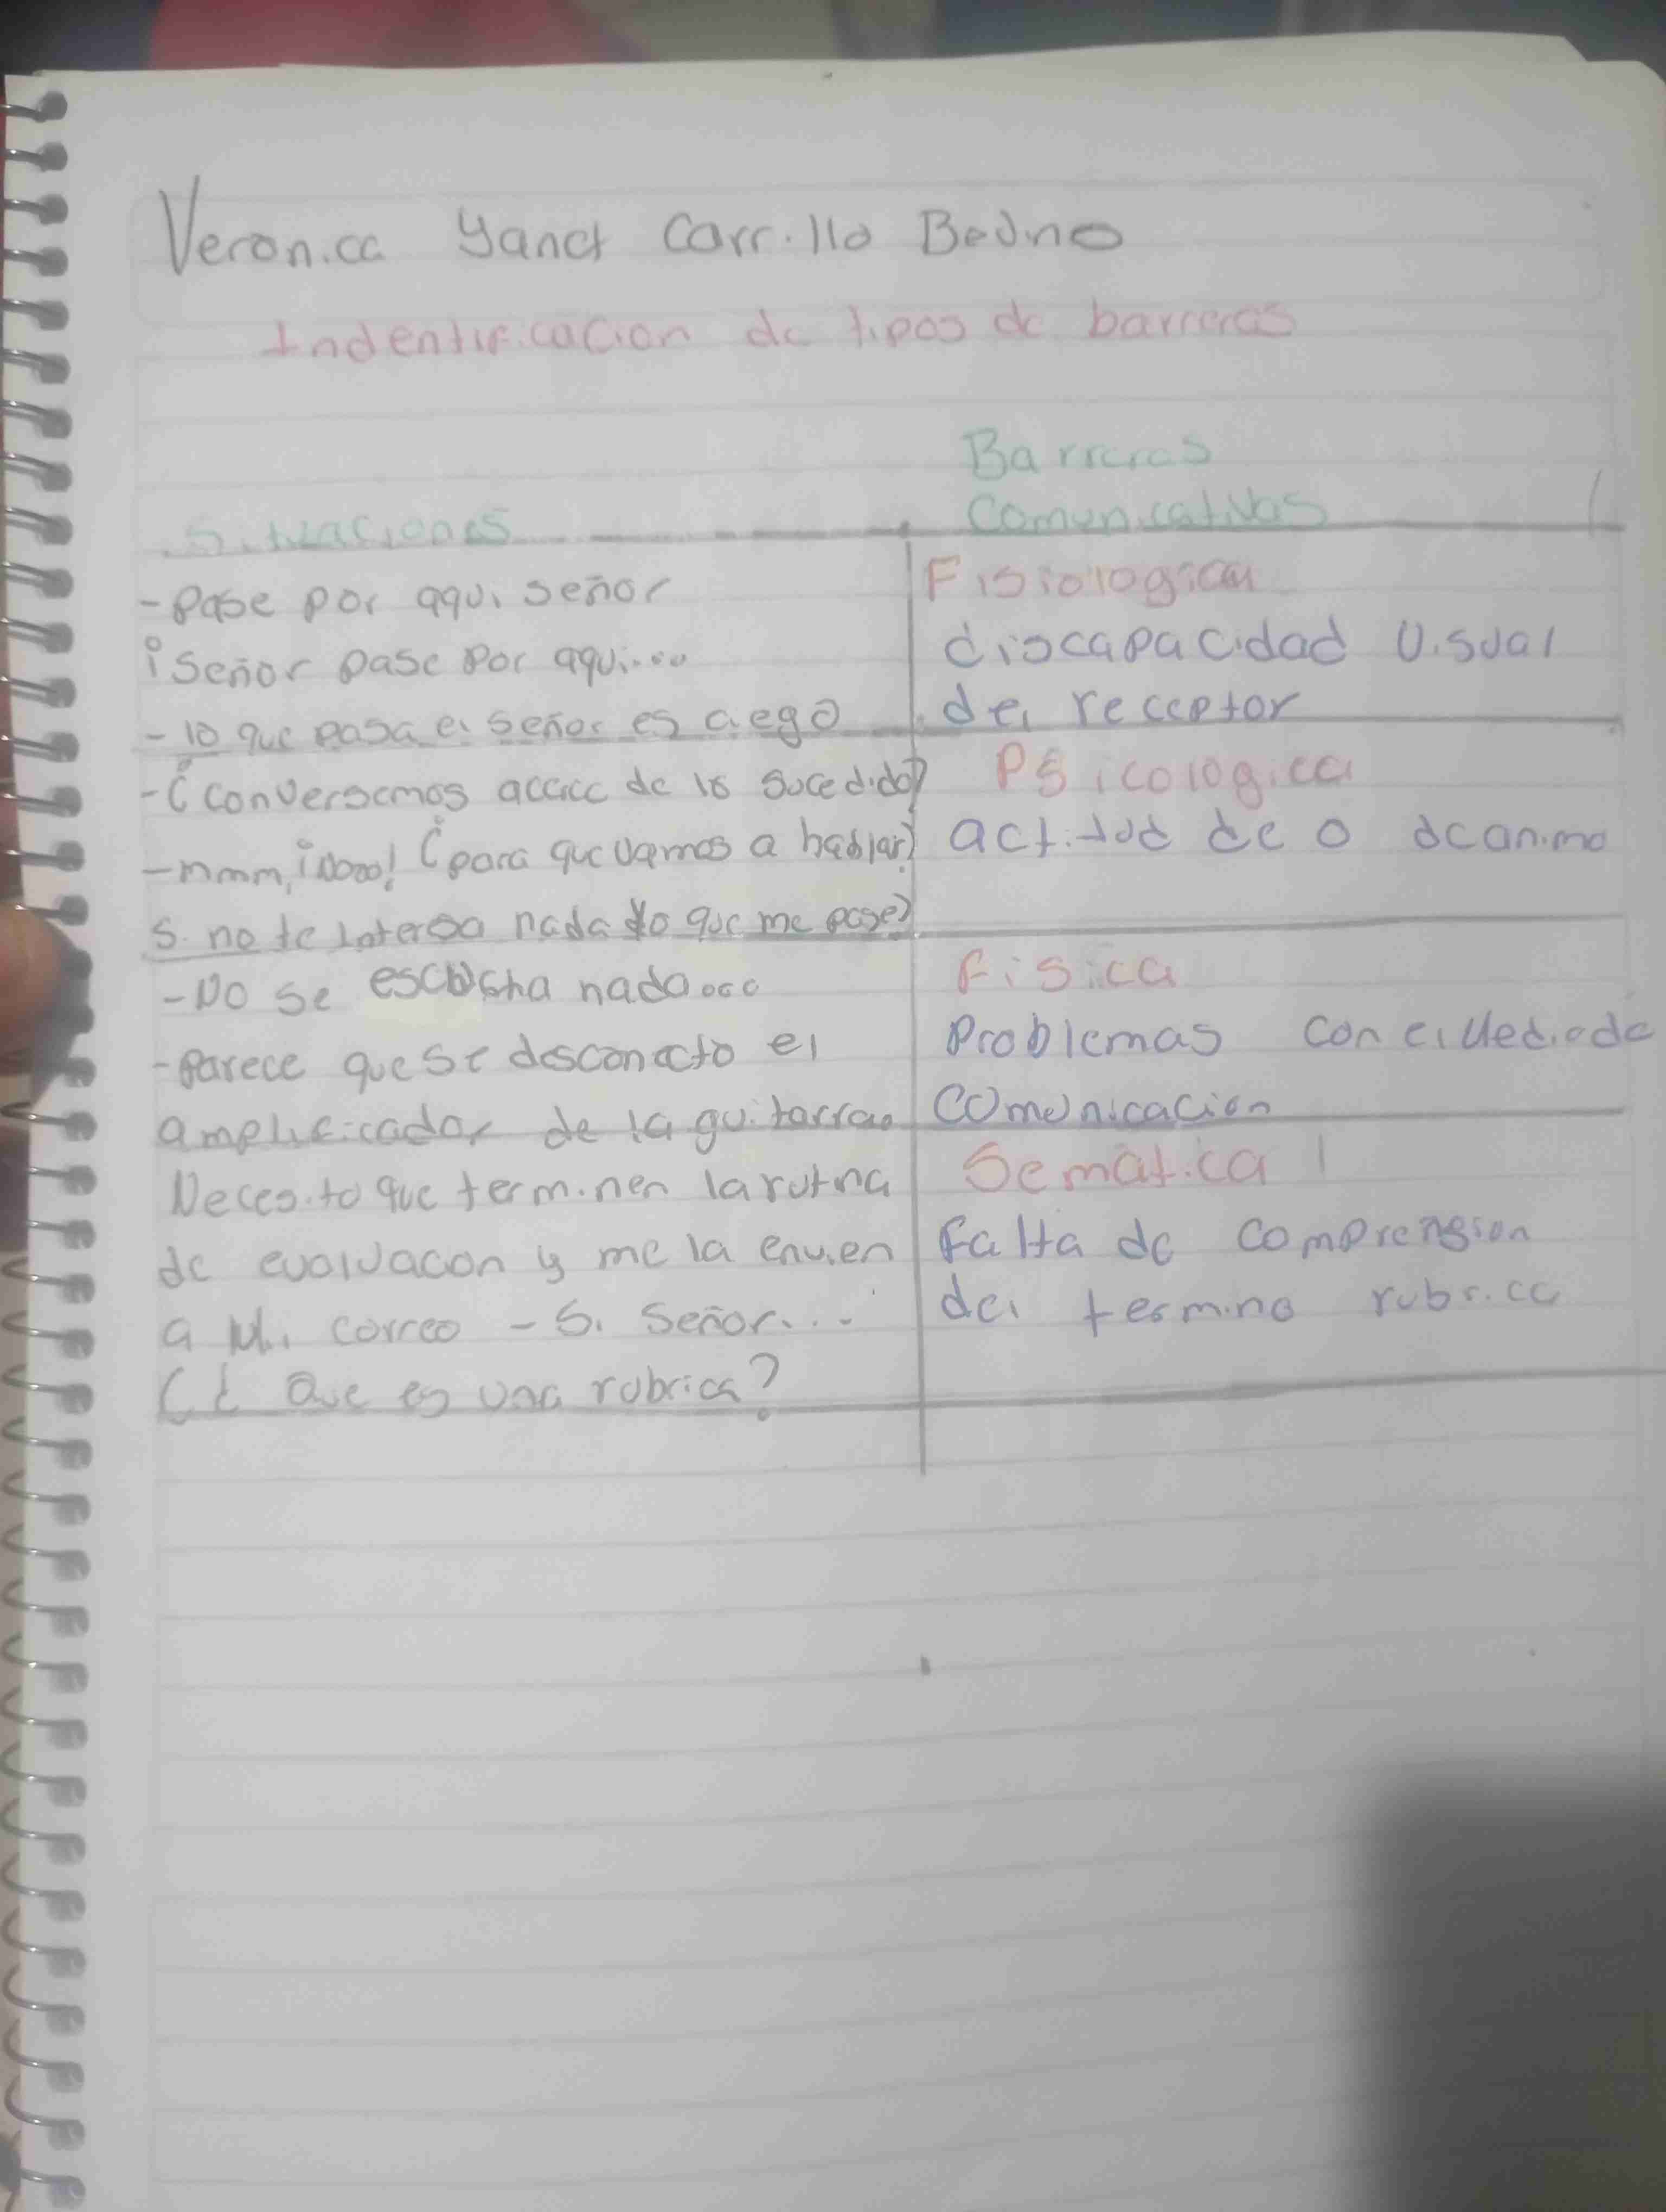 Veronica Yanet Carrillo Bedno
Indentificacion de tipos de barreras
Barreras
Situaciones Comunicativas
-Pase por aqui señor
¡Señor pase por aqui....
- lo que pasa el señor es ciego
Fisiologica
discapacidad visual
del receptor
-¿conversemos acerca de lo sucedido?
-mmm, ¡Nooo! ¿para que vamos a hablar?
si no te interesa nada lo que me pase?
Psicologica
actitud de o deanimo
-No se escucha nada...
-parece que se desconecto el
amplificador de la guitarra.
Fisica
Problemas con el Mediode
Comunicacion
Necesito que terminen la rutina
de evaluacon y me la envien
a Mi correo - Si Señor...
(¿ Que es una rubrica?
Sematica
Falta de comprension
del termino rubrica